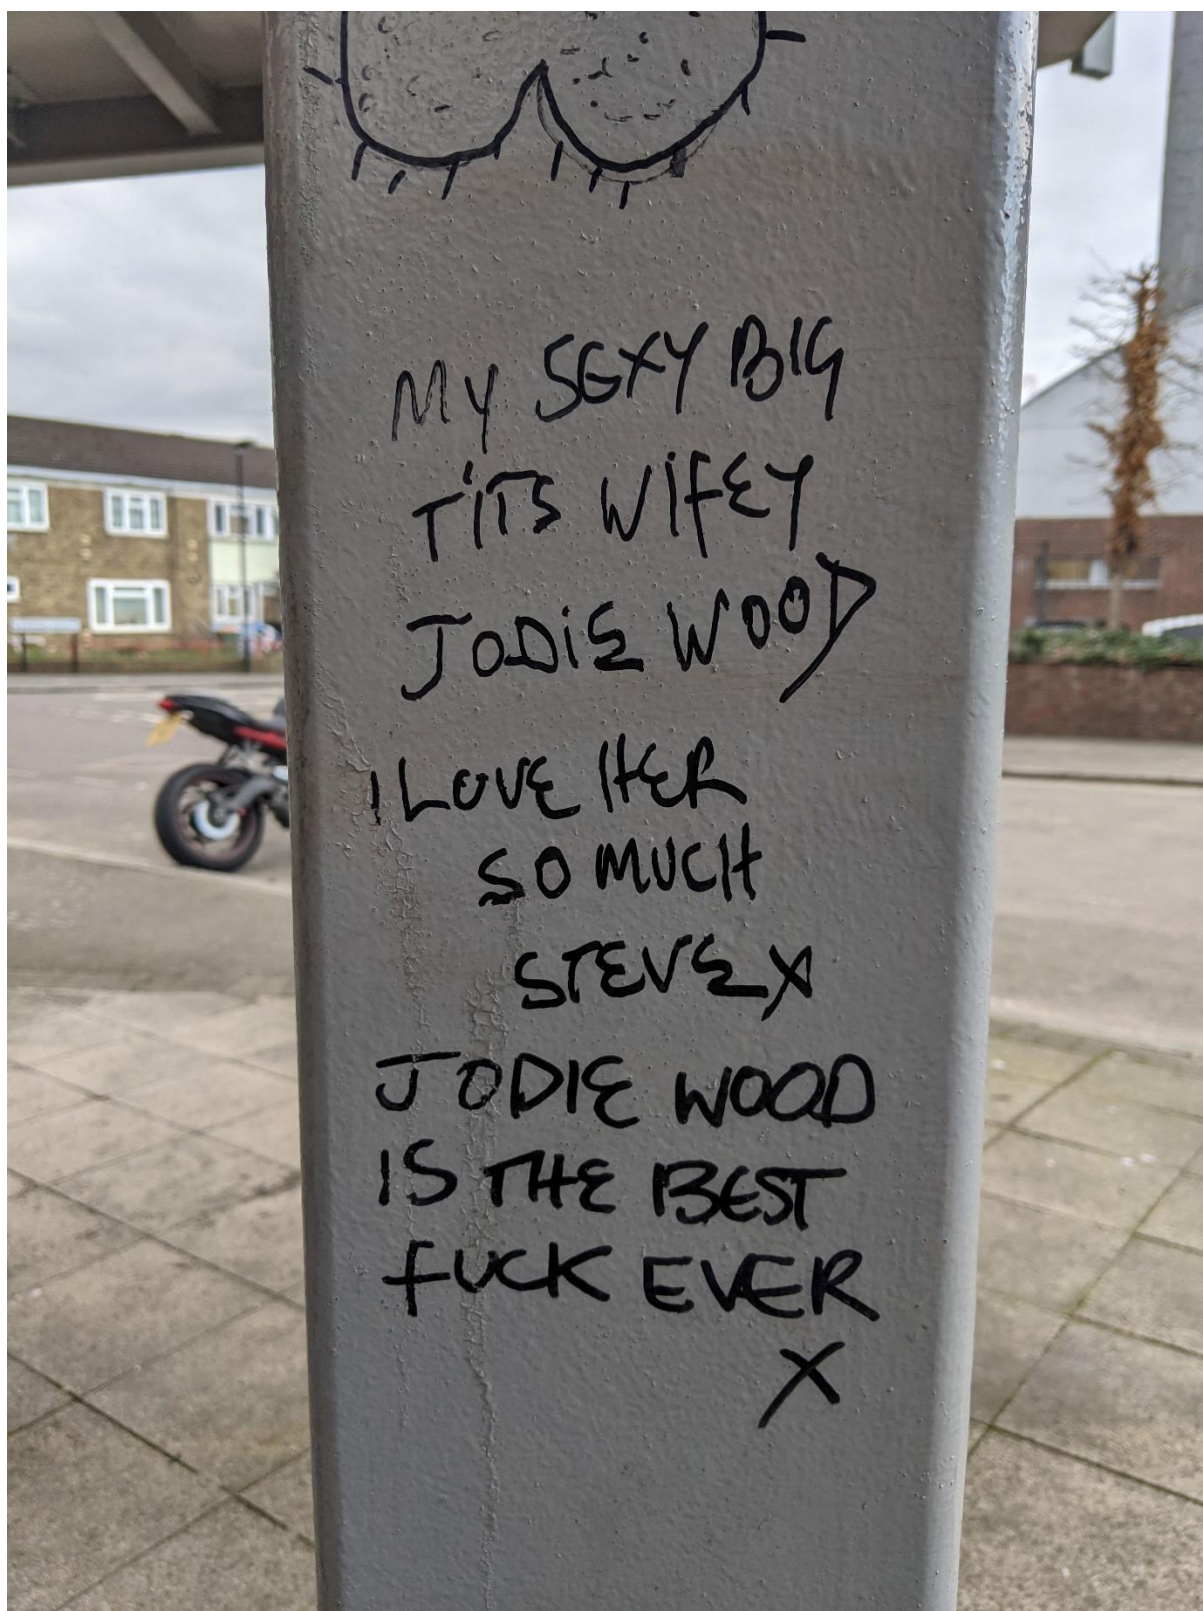 MY SEXY BIG
TITS WIFEY
JODIE WOOD
I LOVE HER
SO MUCH
STEVE X
JODIE WOOD
IS THE BEST
FUCK EVER
X